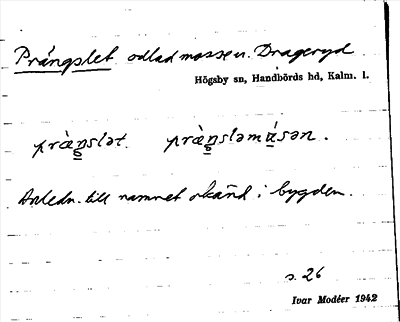 Prångslet odlad mosse u. Drageryd
Högsby sn, Handbörds hd, Kalm. l.
prą̀ŋ̥slət. prą̀ŋ̥sləmásən.
Anledn. till namnet okänd i bygden.
s. 26
Ivar Modéer 1942